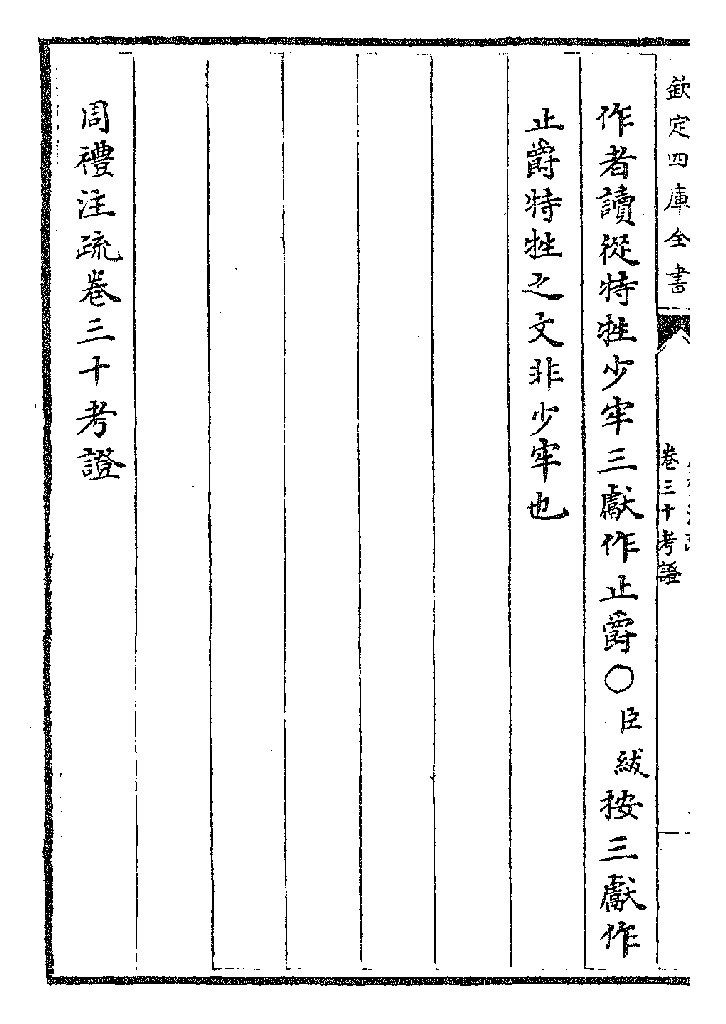 欽定四庫全書
卷三十考證
作者讀從特牲少牢三獻作止爵〇臣紱按三獻作
止爵特牲之文非少牢也
周禮注疏卷三十考證